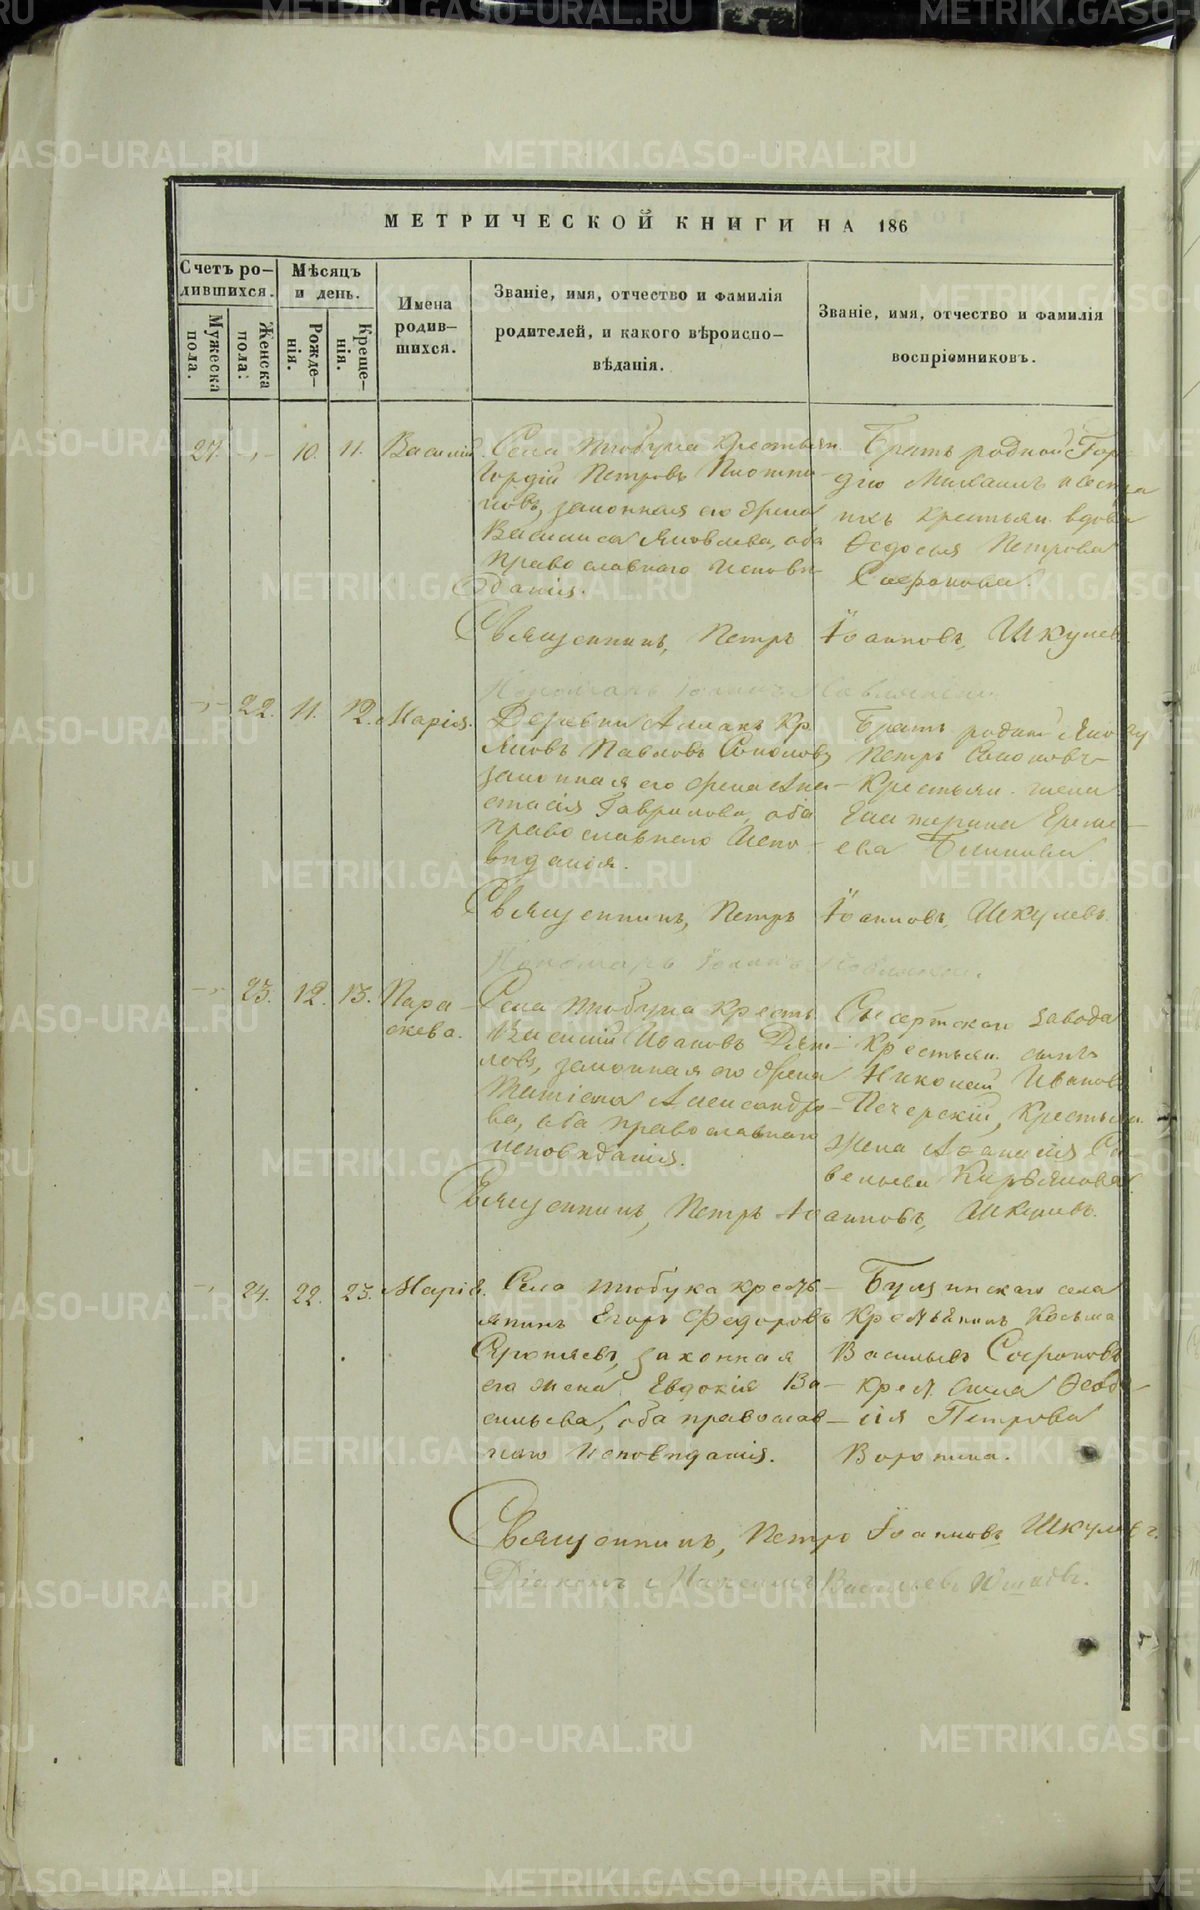 МЕТРИЧЕСКОЙ КНИГИ НА 186
Счетъ ро-
дившихся.
Мужеска
пола.
Женска
пола.
Мѣсяцъ
и день.
Рожде-
нія.
Креще-
нія.
Имена
родив-
шихся.
Званіе, имя, отчество и фамилія
родителей, и какого вѣроиспо-
вѣданія.
Званіе, имя, отчество и фамилія
воспріемниковъ.
27. 10. 11. Василій.
Села Тюбука Крестьян
Гордій Петровъ Плотни-
ковъ, законная его жена
Василиса Яковлева, оба
православнаго исповѣ-
данія.
Братъ родной Гор-
дію Михаилъ
крестьян. вдова
Ѳедосья Петрова
Сафонова.
Священникъ, Петръ Іоанновъ, Шкулевъ
22. 11. 12. Марія.
Пономарь Іоаннъ
Деревни Кр.
Яковъ Павловъ Соколовъ,
законная его жена Ана-
стасія Гаврилова, оба
православнаго Испо-
вѣданія.
Братъ родной Якову
Петръ Соколовъ
Крестьян. жена
Екатерина Ереме-
ева Блинова
Священникъ, Петръ Іоанновъ, Шкулевъ.
Пономарь Іоаннъ
23. 12. 13. Пара-
скева.
Села Тюбука Кресть.
Василій Ивановъ Дят-
ловъ, законная его жена
Татіана Александро-
ва, оба православнаго
исповѣданія.
Сысертскаго завода
Крестьян. сынъ
Николай Ивановъ
Печерскій, Крестьян.
жена Аѳанасія Са-
вельева Кирьянова.
Священникъ, Петръ Іоанновъ, Шкулевъ.
24. 22. 23. Марія.
Села Тюбука крест-
янинъ Егоръ Федоровъ
законная
его жена Евдокія Ва-
сильева, оба православ-
наго Исповѣданія.
села
Крестьянинъ Козьма
Васильевъ Сафоновъ
крес. Ѳеодо-
сія Петрова
Воронина.
Священникъ, Петръ Іоанновъ Шкулевъ.
Діаконъ Васильевъ
METRIKI.GASO-URAL.RU